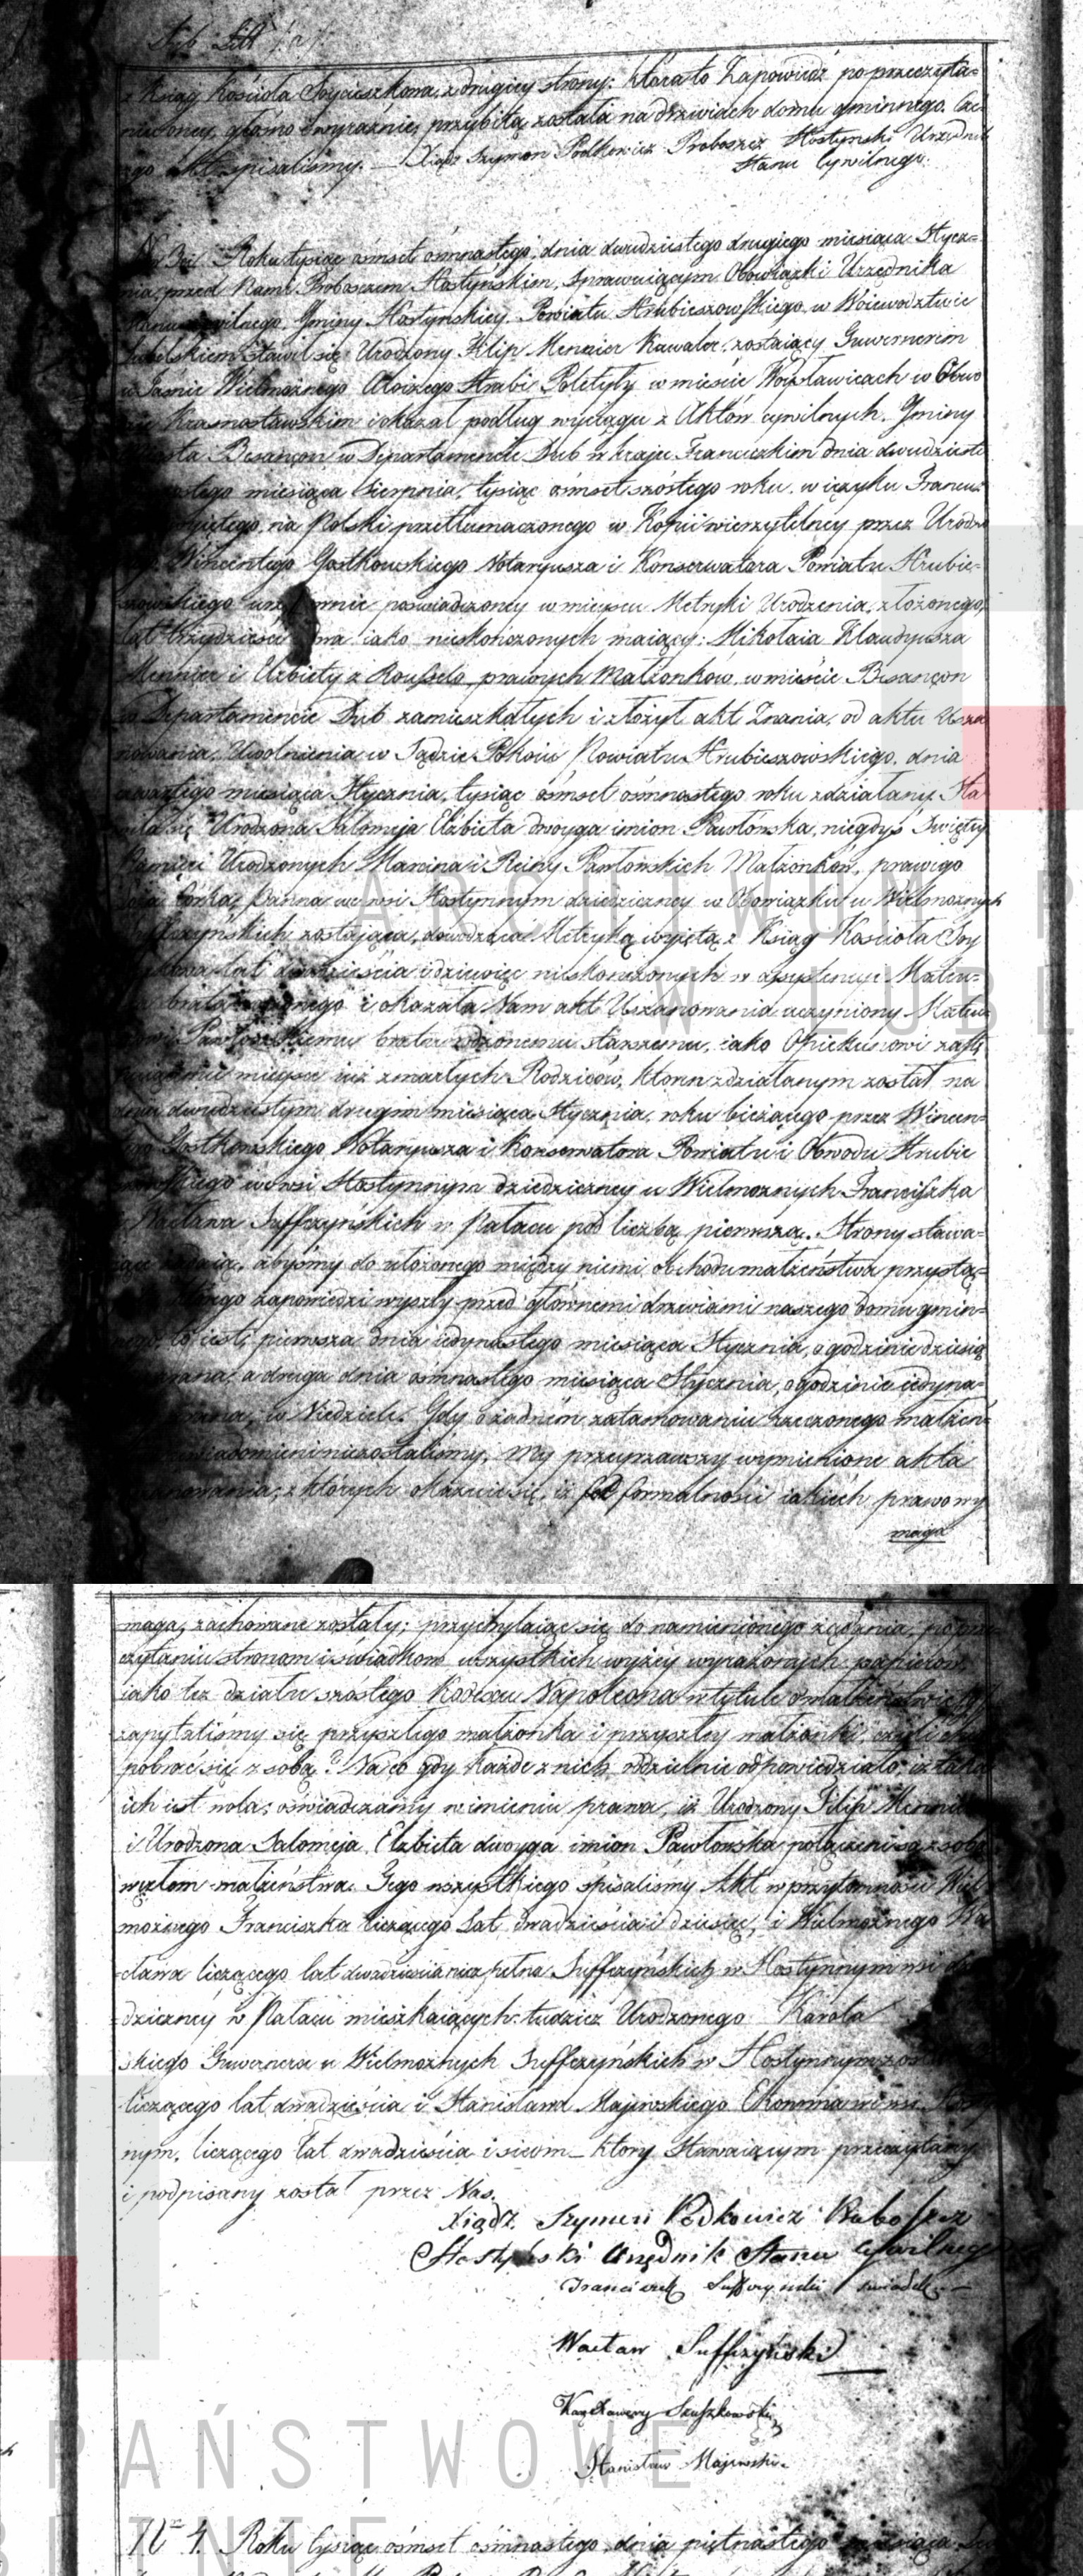 Księg Kościoła Soycieszkowa, z drugiey strony: która to Zapowiedź po przeczyta=
niu oney, głośno i wyraźnie, przybitą została na drzwiach domu gminnego.
go Akt spisaliśmy. — Xiądz Szymon Podkowicz Proboszcz Hostynski Urzędnik
Stanu Cywilnego.
Roku tysiąc ośmset ośmnastego, dnia dwudziestego drugiego miesiąca Stycz=
nia, przed Nami Proboszczem Hostyńskim, sprawuiącym Obowiązki Urzędnika
Stanu Cywilnego, Gminy Hostyńskiey, Powiatu Hrubieszowskiego, w Woiewództwie
Lubelskiem stawił się Urodzony Filip Mennier Kawaler, zostaiący Guwernerem
u Jaśnie Wielmożnego Aloizego Hrabi Poletyły w mieście Woysławicach w Obwo
dzie Krasnostawskim i okazał podług wyciągu z Aktów cywilnych, Gminy
Miasta Besançon w Departamencie Dub w kraju Francuzkim dnia dwudziesto
miesiąca Sierpnia, tysiąc ośmset szóstego roku, w ięzyku Francu
na Polski przetłumaczonego w Kopii wierzytelney przez Urodzo
Wincentego Gostkowskiego Notaryusza i Konserwatora Powiatu Hrubie=
szowskiego poświadczoney w mieyscu Metryki Urodzenia, złożonego,
lat trzydzieści dwa iako nieskończonych maiący: Mikołaia Klaudyusza
Mennier i Elżbiety z Rousselo prawych Małżonków, w mieście Besançon
w Departamencie Dub zamieszkałych i złożył akt Znania, od aktu Usza
nowania, Uwolnienia w Sądzie Pokoiu Powiatu Hrubieszowskiego, dnia
czwartego miesiąca Stycznia, tysiąc ośmset ośmnastego roku zdziałany. Sta
wiła się Urodzona Salomeja Elżbieta dwoyga imion Pawłowska, niegdyś Świętey
Pamięci Urodzonych Marcina i Reiny Pawłowskich Małżonków, prawego
łoża Córka, Panna we wsi Hostynnym dziedziczney w Obowiązku u Wielmożnych
Suffczyńskich zostaiąca, dowodząca Metryką wyiętą z Ksiąg Kościoła Soy
lat dwadzieścia i dziewięć nieskończonych w assystencyi Mateu=
sza brata i okazała Nam akt Uszanowania uczyniony Mateu
szowi Pawłowskiemu bratu rodzonemu starszemu, iako Opiekunowi zastę
puiącemu mieysce iuż zmarłych Rodziców, który zdziałanym został na
dniu dwudziestym drugim miesiąca Stycznia, roku bieżącego przez Wincen=
tego Gostkowskiego Notaryusza i Konserwatora Powiatu i Obwodu Hrubie
szowskiego we wsi Hostynnym dziedziczney u Wielmożnych Franciszka
i Wacława Suffczyńskich w Pałacu pod liczbą pierwszą. Strony stawa=
iące żądaią, abyśmy do ułożonego między niemi obchodu małżeństwa przystą=
którego zapowiedzi wyszły przed głównemi drzwiami naszego domu gmin=
nego, to iest; pierwsza dnia iedynastego miesiąca Stycznia, o godzinie dziesią
zrana, a druga dnia ośmnastego miesiąca Stycznia, o godzinie iedyna=
zrana, w Niedziele. Gdy o żadném zatamowaniu rzeczonego małżeń=
uwiadomieni niezostaliśmy, my przeyrzawszy wymienione akta
uszanowania; z których okazuie się, iż formalności iakich prawo wy
maga
maga, zachowane zostały; przychylaiąc się do namienionego żądania, po prze
czytaniu stronom i świadkom wszystkich wyżey wyrażonych papierów,
iako też działu szóstego Kodexu Napoleona w tytule o małżeństwie
zapytaliśmy się przyszłego małżonka i przyszłey małżonki; czyli chcą
pobrać się z sobą? Na co gdy każde z nich oddzielnie odpowiedziało, iż taka
ich iest wola; oświadczamy w imieniu prawa, iż Urodzony Filip Mennier
i Urodzona Salomeja Elżbieta dwoyga imion Pawłowska połączeni są z sobą
węzłem małżeństwa. Tego wszystkiego spisaliśmy Akt w przytomności Wiel
możnego Franciszka liczącego Lat dwadzieścia i dziesięć, i Wielmożnego Wa
cława liczącego lat dwadzieścia Suffczyńskich w Hostynnym wsi dzie
dziczney w Pałacu mieszkaiących: tudzież Urodzonego Karola
skiego Guwernera u Wielmożnych Suffczyńskich w Hostynnym
liczącego lat dwadzieścia i Stanisława Majewskiego Ekonoma we wsi Hosty
nym, liczącego lat dwadzieścia i siedm — który Stawaiącym przeczytany
i podpisany został przez Nas.
Xiądz Szymon Podkowicz Proboszcz
Hostyński Urzędnik Stanu Cywilnego
Franciszek Suffczyński świadek —
Wacław Suffczyński
Szuszkowski
Stanisław Majewski
N= 4. Roku tysiąc ośmset ośmnastego, dnia piętnastego miesiąca
ARCHIWUM P
W LUBL
PAŃSTWOWE